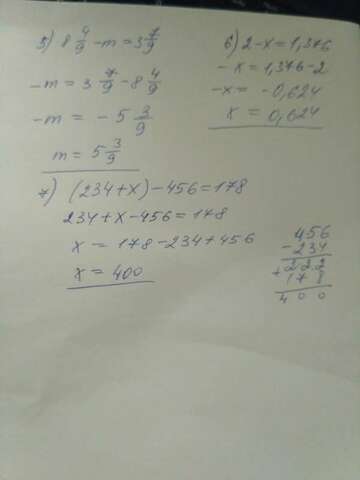 5) 8 4/9 - m = 3 7/9
- m = 3 7/9 - 8 4/9
- m = - 5 3/9
m = 5 3/9
6) 2 - x = 1,376
- x = 1,376 - 2
- x = - 0,624
x = 0,624
7) (234 + x) - 456 = 178
234 + x - 456 = 178
x = 178 - 234 + 456
x = 400
456
- 234
222
+ 178
400